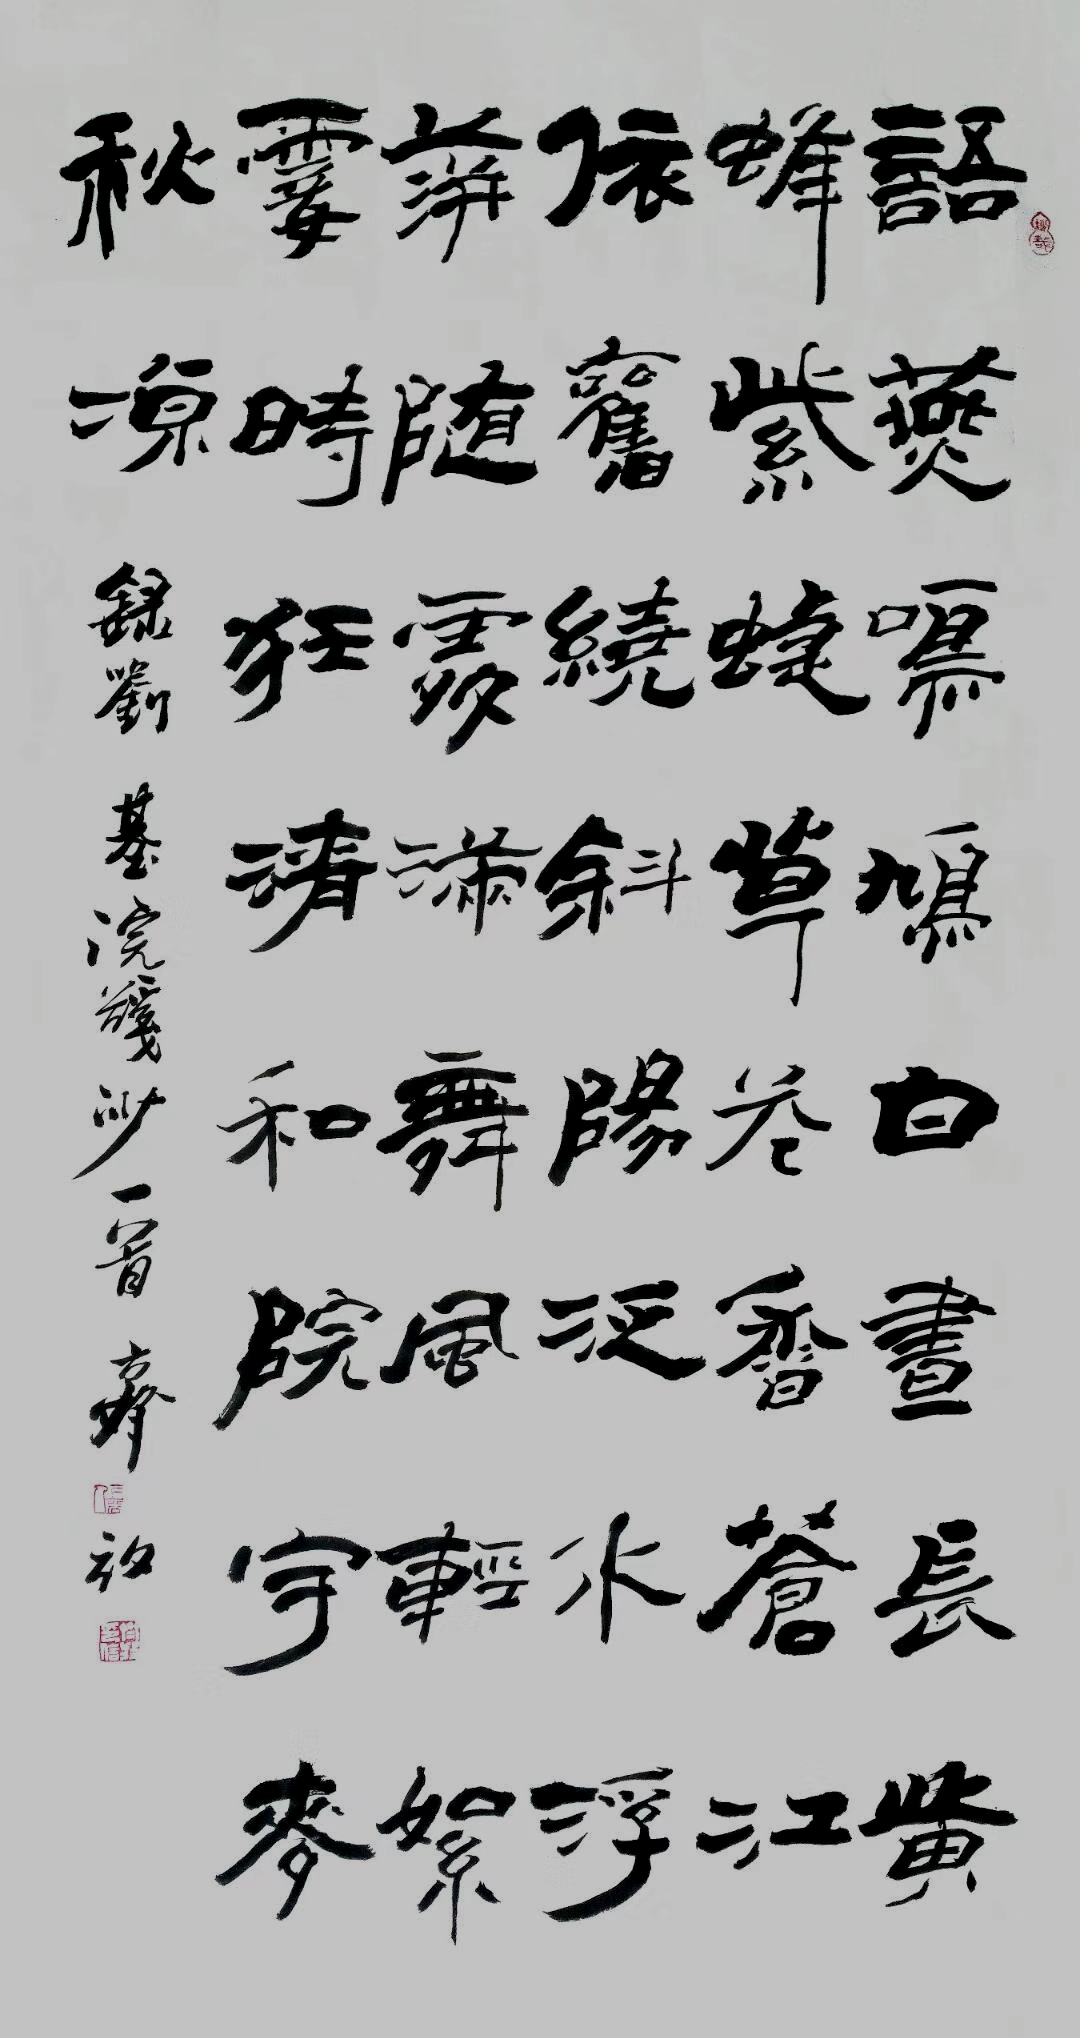 語燕鳴鳩白晝長黄
蜂紫蜨草花香蒼江
依舊繞斜陽泛水浮
萍隨霧滿舞風輕絮
霎時狂清和院宇麥
秋涼
錄劉基浣溪沙一首